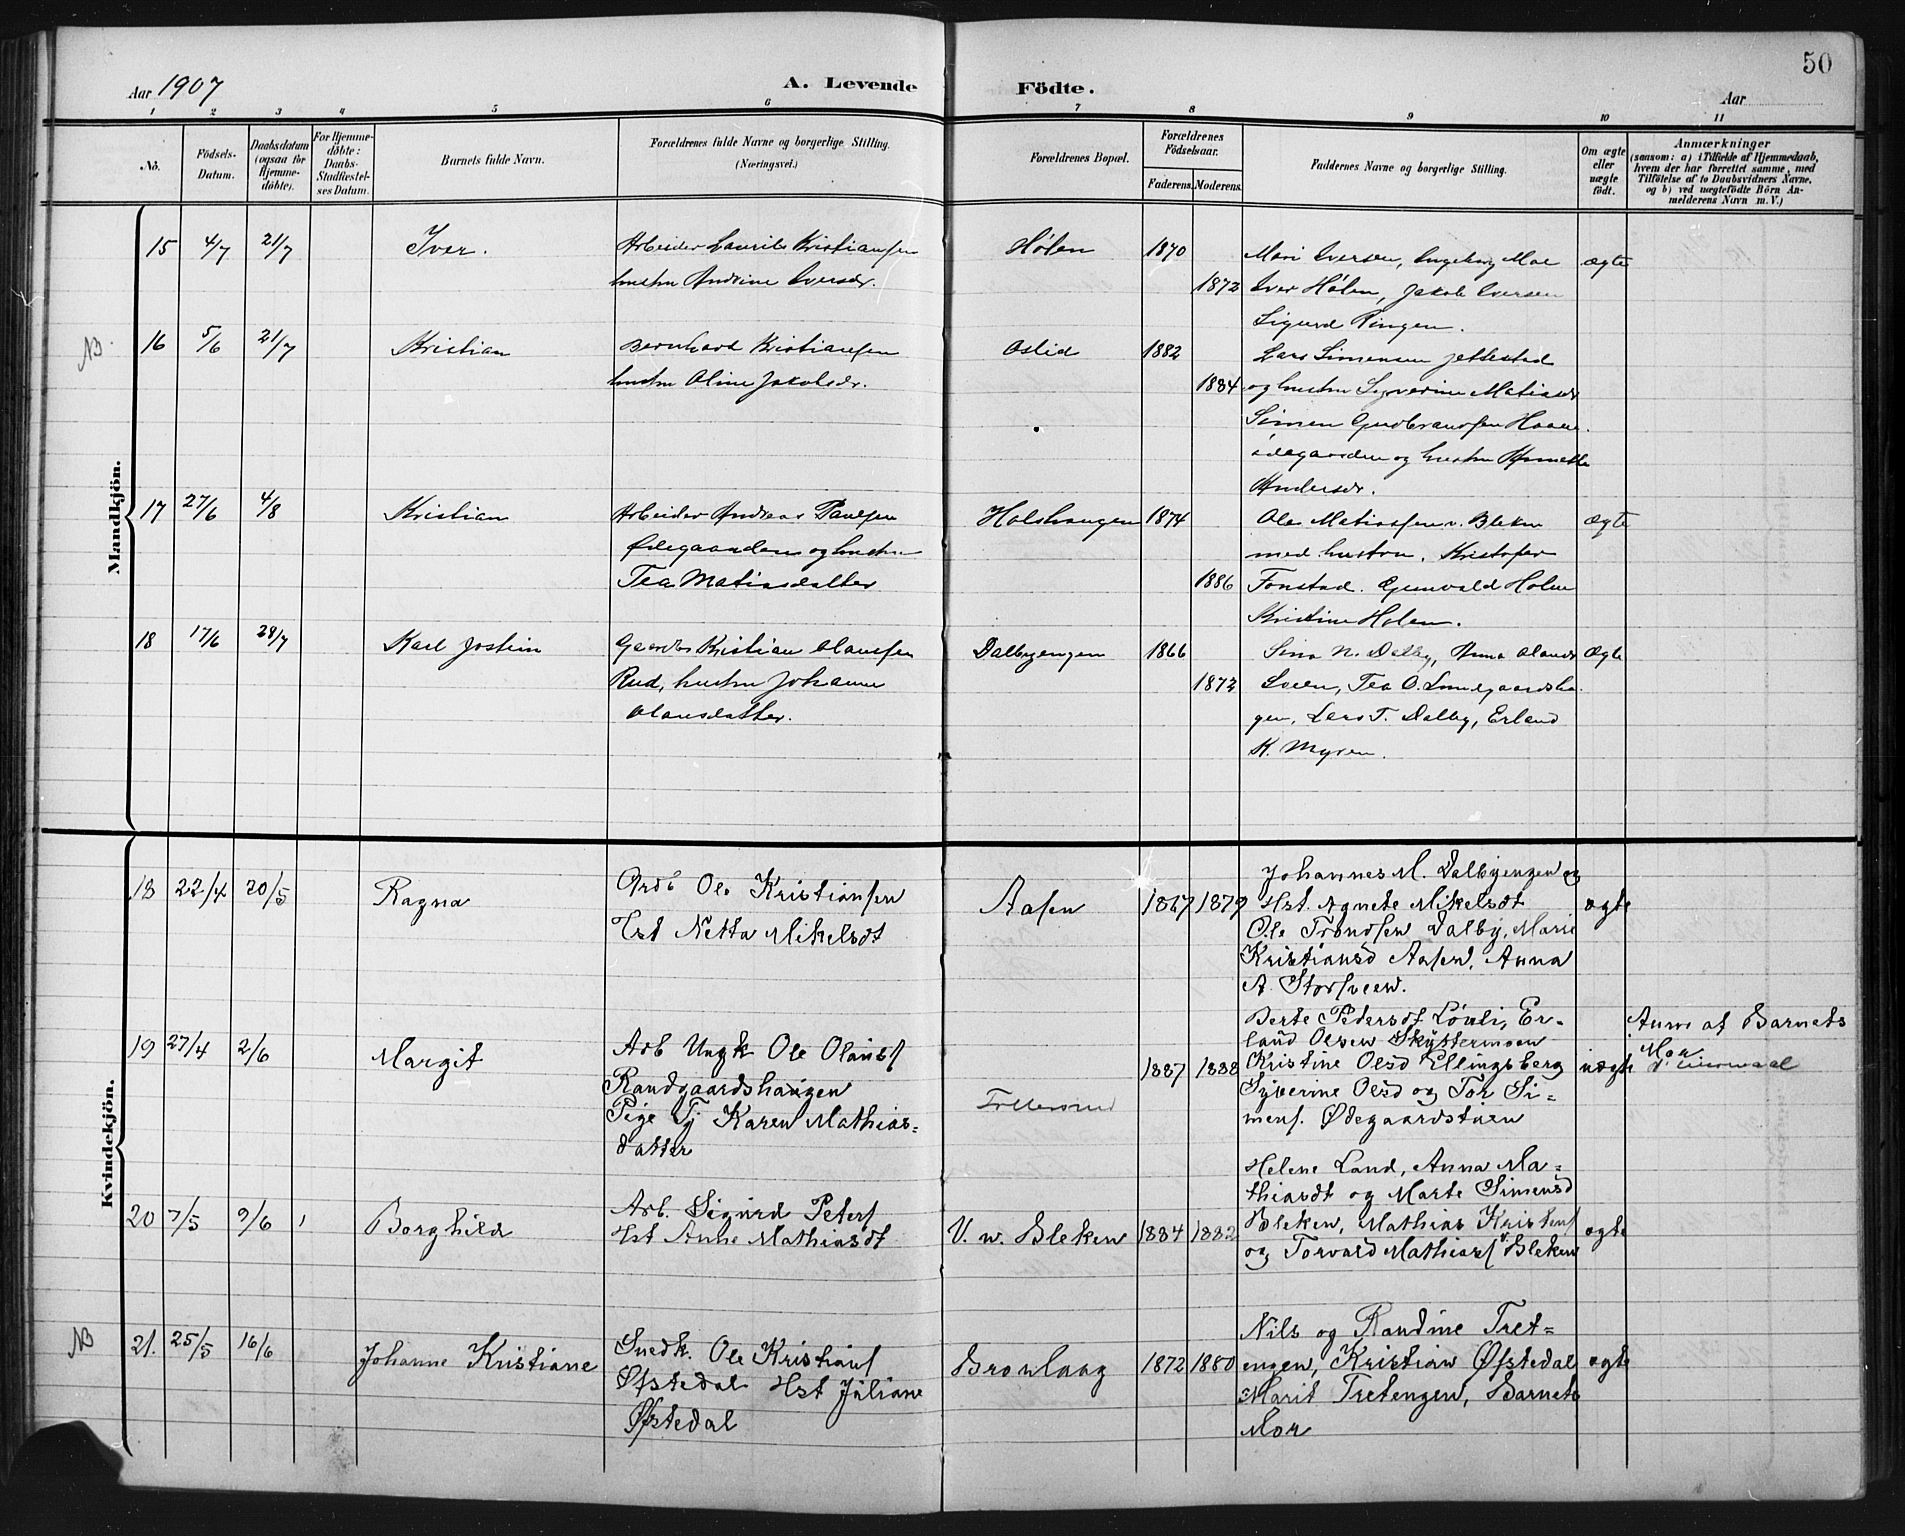 50
Aar 1907
A. Levende Födte.
Aar
1 2 3 4 5 6 7 8 9 10 11
No.
Födsels-Datum.
Daabsdatum (ogsaa for Hjemmedöbte).
For Hjemmedöbte: Daabs-Stadfæstelses Datum.
Barnets fulde Navn.
Forældrenes fulde Navne og borgerlige Stilling. (Næringsvei.)
Forældrenes Bopæl.
Forældrenes Födselsaar.
Faderens. Moderens.
Faddernes Navne og borgerlige Stilling.
Om ægte eller uægte födt.
Anmærkninger (saasom: a) i Tilfælde af Hjemmedaab, hvem der har forrettet samme, med Tilföielse af to Daabsvidners Navne, og b) ved uægtefödte Börn Anmelderens Navn m. V.)
Mandkjön.
15 4/7 21/7 Iver. Arbeider Laurits Kristiansen Hølen 1870 Mari Iversen, Ingeborg Moe ægte
hustru Andrine Iversdr. 1872 Iver Hølen, Jakob Iversen
Sigurd Ringen.
NB. 16 5/6 21/7 Kristian Bernhard Kristiansen Oslid 1882 Lars Simensen Jettestad
hustru Oline Jakobsdr. 1884 og hustru Syverine Matiasdr
Simen Gudbrandsen
ødegaarden og hustru Annette
Andersdr.
17 27/6 4/8 Kristian Arbeider Andreas Paulsen Holshaugen 1874 Ole Matiassen v. Bleken ægte
Ødegaarden og hustru med hustru. Kristofer
Tea Matiasdatter 1886 Fonstad. Gunvald Holen
Kristine Holen.
18 17/6 28/7 Karl Jostein Gaardbr Kristian Olaussen Dalbyengen 1866 Sina N. Dalby, Anna Olausdr Ægte
Rud, hustru Johanne 1872 Lveen, Tea O. Lundgaardsha
Olausdatter. gen, Lars T. Dalby, Erland
K. Myren.
Kvindekjön.
18 22/4 20/5 Ragna Ardb Ole Kristiansen Aasen 1867 1879 Johannes M. Dalbyengen og ægte
Hst Netta Mikelsdt Hst. Agnete Mikelsdt
Ole Trondsen Dalby, Marie
Kristiansd Aasen, Anna
A. Storsveen.
19 27/4 2/6 Margit Arb Ungk Ole Olausf Berte Pedersdt Løvli, Er= Anm af Barnets
Randgaardshaugen land Olsen Skyttermoen Mor
Pige Tj Karen Mathias= 1887 1888 Kristine Olsd Ellingsberg uægte
datter Syverine Olsd og Tor Si=
mens. Ødegaardstuen
20 7/5 9/6 1 Borghild Arb. Sigurd Peters V. n. Bleken 1884 1882 Helene Land, Anna Ma= ægte
Hst Anne Mathiasdt thiasdt og Marte Simensd
Bleken, Mathias Kristens
og Torvald Mathias v. Bleken
NB 21. 25/5 16/6 Johanne Kristiane Snedk. Ole Kristians Bronlaag 1872 1880 Nils og Randine Tret= ægte
Øfstedal Hst Juliane engen, Kristian Øfstedal
Øfstedal Marit Tretengen, Barnets
Mor